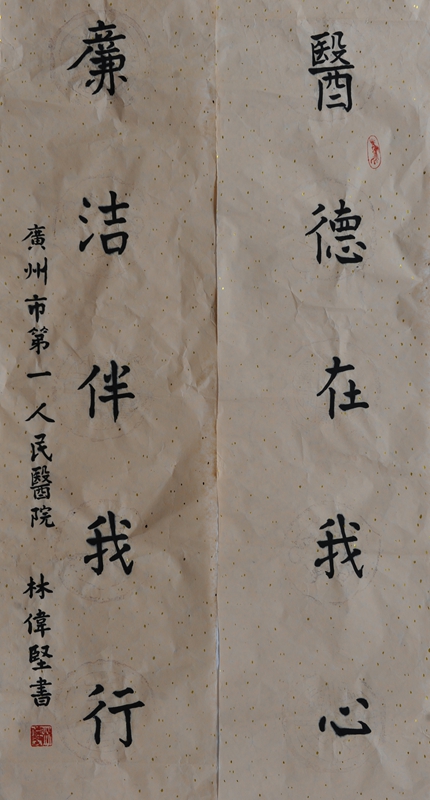 醫德在我心
廉洁伴我行
廣州市第一人民醫院 林偉堅書